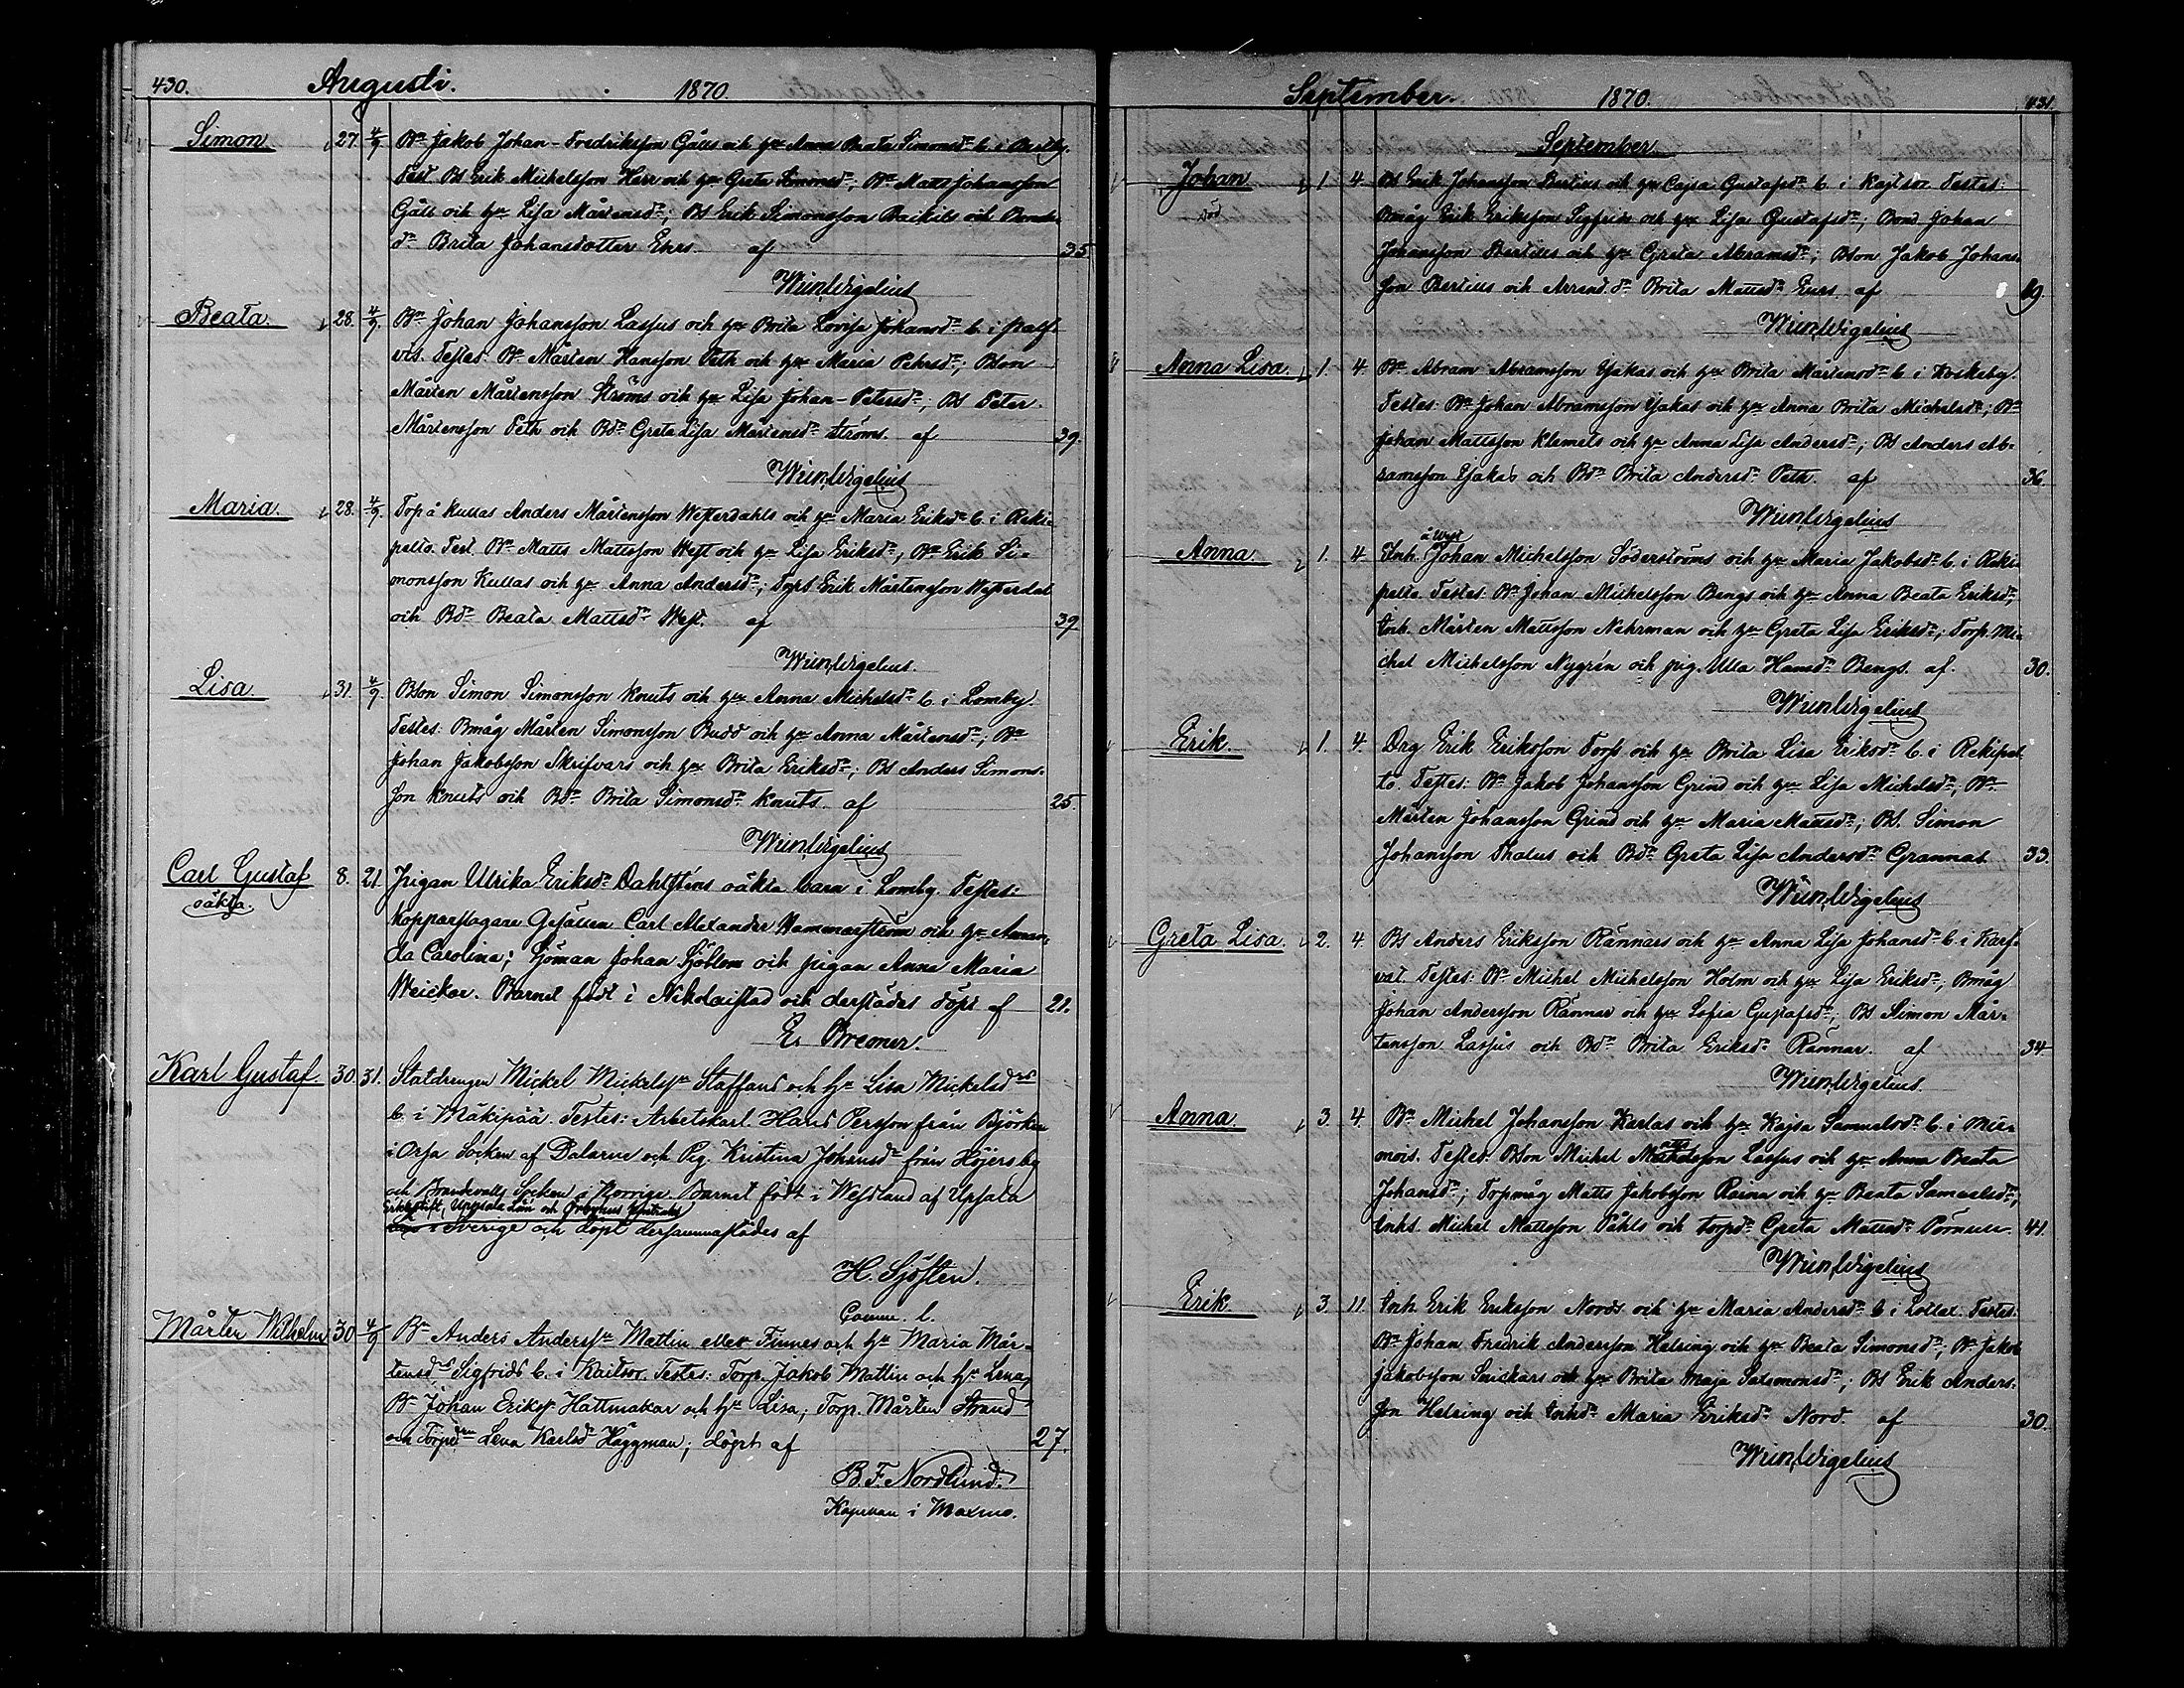 430. Augusti. 1870.
Simon 27 4/9 Bn Jakob Johan-Fredriksson Gåtts och hu Anna Beata Simonsdr b. i
Test. Bs Erik Michelsson Herr och hu Greta Simonsdr; Bn Matts Johansson
Gåtts och hu Lisa Mårtensdr; Bs Erik Simonsson och
dr Brita Johansdotter Ehrs. af 35
Wigelius
Beata. 28. 4/9. Bn Johan Johansson Lassus och hu Brita Lovisa Johansdr b. i
vis. Testes: Bn Mårten Hansson Peth och hu Maria Pehrsdr; Bson
Mårten Mårtensson Ströms och hu Lisa Johan-Petersdr; Bs Peter
Mårtensson Peth och Bdr Greta Lisa Mårtensdr Ströms. af 39.
Wigelius
Maria. 28. 4/9. Torp å Kullas Anders Mårtensson Westerdahls och hu Maria Eriksdr b. i Reki-
pelto. Test. Bn Matts Mattsson West och hu Lisa Eriksdr; Bn Erik Si-
monsson Kullas och hu Anna Andersdr; Torps Erik Mårtensson Westerdal
och Bdr Beata Mattsdr West. af 39
Wigelius.
Lisa. 31. 4/9. Bson Simon Simonsson Knuts och hu Anna Michelsdr b. i Lomby.
Testes: Bmåg Mårten Simonsson Budd och hu Anna Mårtensdr; Bn
Johan Jakobsson Skrifvars och hu Brita Eriksdr; Bs Anders Simons-
son Knuts och Bdr Brita Simonsdr Knuts. af 25.
Wigelius
Carl Gustaf 8. 21. Pigan Ulrika Eriksdr Dahlsténs oäkta barn i Lomby. Testes:
oäkta.
Kopparslagare Gesällen Carl Alexander Hammarström och hu Aman-
da Carolina; Sjöman Johan Sjöblom och pigan Anna Maria
Weickar. Barnet födt i Nikolaistad och derstädes döpt af 21.
E. Bremer.
Karl Gustaf. 30. 31. Statdrengen Mickel Mickelsn Staffans och hu Lisa Mickelsdr
b. i Mäkipää. Testes: Arbetskarl Hans Persson från Björken
i Orsa Socken af Dalarne och Pig. Kristina Johansdr från Höjersby
och Brandvalls Socken i Norrige. Barnet födt i Westland af Upsala
Erkestift, Uppsala Län och Örbyhus
i Sverige och döpt dersammastädes af
H. Sjösten.
Comm. l.
Mårten Wilhelm 30 4/9 Bn Anders Anderssn Mattin eller Finnes och hu Maria Mår-
tensdr Sigfrids b. i Kaitsor. Testes: Torp. Jakob Mattin och hu Lena;
Bn Johan Eriksn Hattmakar och hu Lisa; Torp. Mårten Strand
och Torpdrn Lena Karlsdr Häggman; döpt af 27.
B. F. Nordlund.
Kapellan i Maxmo.
September. 1870. 431.
September.
Johan 1 4 Bs Erik Johansson Bertills och hu Cajsa Gustafsdr b. i Kajtsor. Testes:
död
Bmåg Erik Eriksson Sigfrids och hu Lisa Gustafsdr; Bond Johan
Johansson Bertills och hu Greta Abramsdr; Bson Jakob Johans-
son Bertills och Arrend. dr Brita Mattsdr Ehrs. af 19.
Wigelius
Anna Lisa. 1. 4. Bn Abram Abramsson Gjakas och hu Brita Mårtensdr b. i Koskeby.
Testes: Bn Johan Abramsson Gjakas och hu Anna Brita Michelsdr; Bn
Johan Mattsson Klemets och hu Anna Lisa Andersdr; Bs Anders Ab-
ramsson Gjakas och Bdr Brita Andersdr Peth. af 36.
Wigelius
Anna. 1. 4. Inh. Johan Michelsson Söderströms och hu Maria Jakobsdr b. i Reki-
pelto. Testes: Bn Johan Michelsson Bengs och hu Anna Beata Eriksdr;
Inh. Mårten Mattsson Nehrman och hu Greta Lisa Eriksdr; Torp. Mi-
chel Michelsson Nygrén och pig. Ulla Hansdr Bengs. af. 30.
Wigelius
Erik. 1. 4. Drg Erik Eriksson Torp och hu Brita Lisa Eriksdr b. i Rekipel
to. Testes: Bn Jakob Johansson Grind och hu Lisa Michelsdr; Bn
Mårten Johansson Grind och hu Maria Mattsdr; Bs. Simon
Johansson Thalus och Bdr Greta Lisa Andersdr Grannas 33.
Wigelius
Greta Lisa. 2. 4. Bs Anders Eriksson Rännars och hu Anna Lisa Johansdr b. i Karf-
vat. Testes: Bn Michel Michelsson Holm och hu Lisa Eriksdr; Bmåg
Johan Andersson Rännar och hu Sofia Gustafsdr; Bs Simon Mår-
tensson Lassus och Bdr Brita Eriksdr Rännar. af 34
Wigelius.
Anna. 3. 4. Bn Michel Johansson Karlas och hu Kajsa Samuelsdr b. i
mois. Testes: Bson Michel Lassus och hu Anna Beata
Johansdr; Torpmåg Matts Jakobsson och hu Beata Samuelsdr;
Inhs. Michel Mattsson Påhls och torpdr Greta Mattsdr 41.
Wigelius
Erik. 3. 11. Inh. Erik Eriksson Nords och hu Maria Andersdr b. i Lotlax. Testes:
Bn Johan Fredrik Andersson Helsing och hu Beata Simonsdr; Bn Jakob
Jakobsson Snickars och hu Brita Maja Salomonsdr; Bs Erik Anders-
son Helsing och Inhdr Maria Eriksdr Nord. af 30.
Wigelius